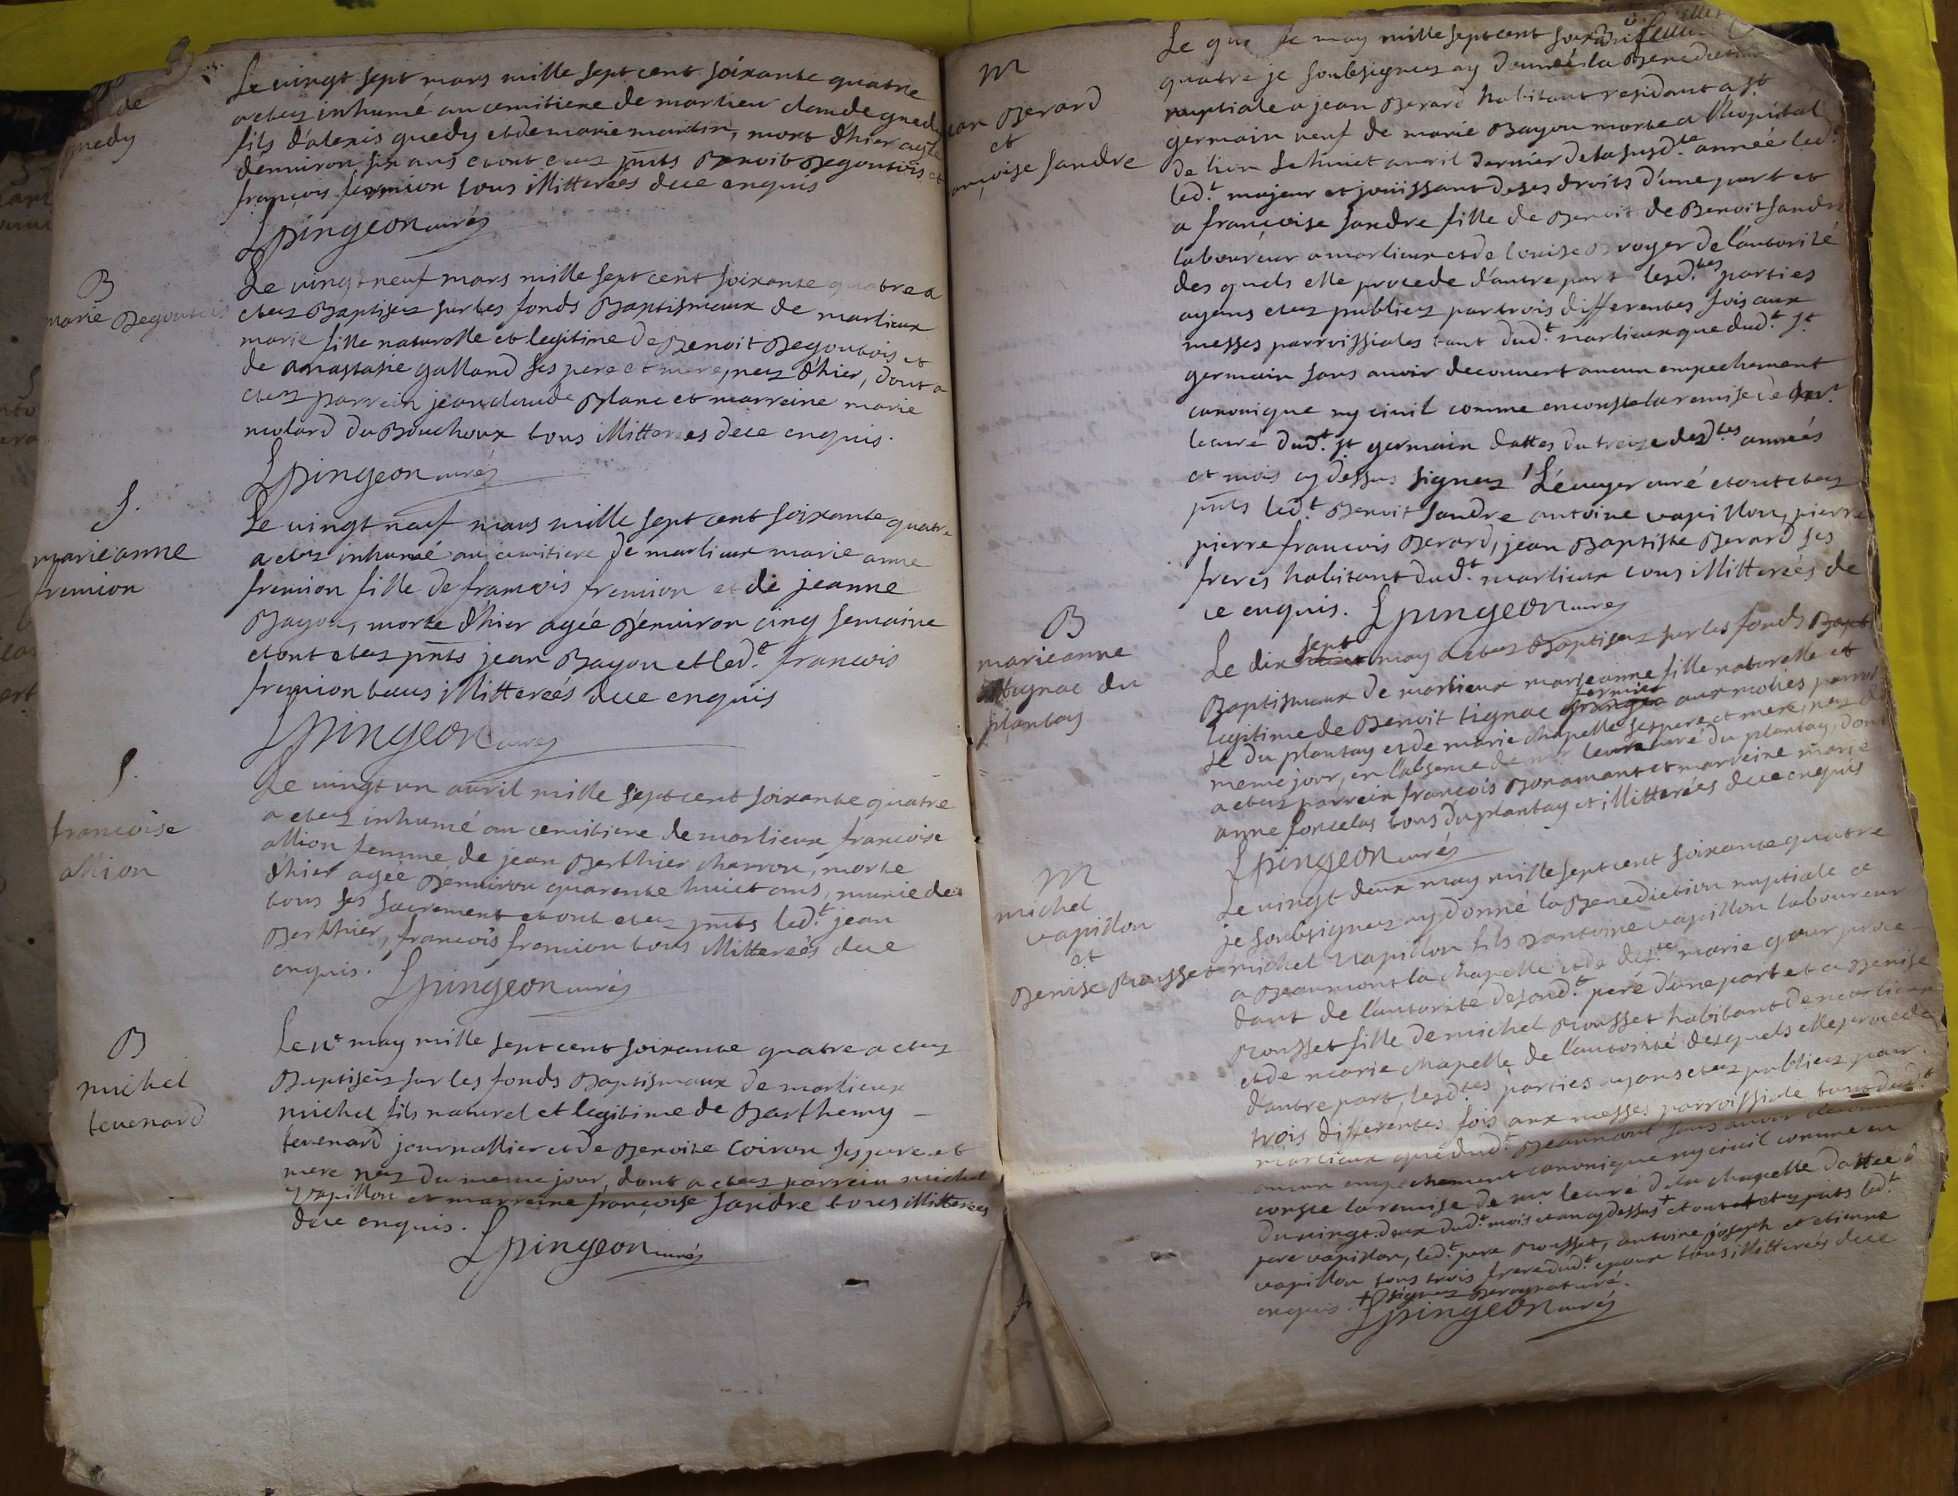 de
guedy
Le vingt sept mars mille sept cent soixante quatre
a etez inhumé au cemitiere de marlieu claude guedy
fils d'alexis guedy et de marie martin, mort d'hier agé
d'enuiron six ans et ont etez pnts Benoit Degoutois et
francois fremion tous illitterées de ce enquis
Lpingeon curés
B
marie Degoutois
Le vingt neuf mars mille sept cent soixante quatre a
etez Baptisez sur les fonds Baptismaux de marlieux
marie fille naturelle et legitime de Benoit Degoutois et
de anastasie galland ses pere et mere, nez d'hier, dont a
etez parrein jean claude Blanc et marreine marie
molard du Bouchoux tous illitterées de ce enquis.
Lpingeon curés
S.
marie anne
fremion
Le vingt neuf mars mille sept cent soixante quatre
a etez inhumé au cemitiere de marlieux marie anne
fremion fille de francois fremion et de jeanne
Bayon, morte d'hier agée d'enuiron cinq semaine
et ont etez pnts jean Bayon et led.t francois
fremion tous illitterées de ce enquis
Lpingeon curés
S.
francoise
allion
Le vingt un auril mille sept cent soixante quatre
a etez inhumé au cemitiere de marlieux francoise
allion femme de jean Berthier charron, morte
d'hier agée d'enuiron quarente huict ans, munie de
tous ses sacrement et ont etez pnts led.t jean
Berthier, francois fremion tous illitterées de ce
enquis. Lpingeon curés
B
michel
teuenard
Le may mille sept cent soixante quatre a etez
Baptisez sur les fonds Baptismaux de marlieux
michel fils naturel et legitime de Barthemy
teuenard journallier et de Benoite Coiron ses pere et
mere nez du meme jour, dont a etez parrein michel
Vapillon et marreine françoise sandre tous illitterées
de ce enquis.
Lpingeon curés
M
jean Berard
et
françoise sandre
Le may mille sept cent soixante
quatre je soubsignez ay donné la Benediction
nuptiale a jean Berard habitant residant a st
germain veuf de marie Bayon morte a l'hopital
de lion le huict auril dernier de la susd.te année led.t
led.t majeur et joüissant de ses droits d'une part et
a françoise sandre fille de Benoit de Benoit sandre
laboureur a marlieux et de louise Broyer de l'autorité
des quels elle procede d'autre part lesd.tes parties
ayans etez publiez par trois differentes fois aux
messes parroissiales tant dud.t marlieux que dud.t st
germain sans auoir decouuert aucun empechement
canonique ny ciuil comme en conste la remise de
le curé dud.t st germain dattes du treize desd.tes années
et mois cy dessus signez Léuuyer curé et ont etez
pnts led.t Benoit sandre antoine vapillon, pierre
pierre francois Berard, jean Baptiste Berard ses
freres habitant dud.t marlieux tous illitterées de
ce enquis. Lpingeon curés
B
marie anne
tignac du
plantay
Le dix sept may a etez Baptisez sur les fonds Bapt
Baptismaux de marlieux marie anne fille naturelle et
legitime de Benoit tignac fermier aux molies parrois
se du plantay et de marie chapelle ses pere et mere, nez du
meme jour, en l'absence de mr leur curé du plantay, dont
a etez parrein françois Bonamant et marreine marie
anne forcelas tous du plantay et illitterées de ce enquis
Lpingeon curés
M
michel
vapillon
et
Denise Rousset
Le vingt deux may mille sept cent soixante quatre
je soubsignez ay donné la Benediction nuptiale a
michel Vapillon fils d'antoine vapillon laboureur
a Beaumont la chapelle et de def.te marie goux proce
dant de l'autorité de sond.t pere d'une part et a Denise
Rousset fille de michel Rousset habitant de marlieux
et de marie chapelle de l'autorité desquels elle procede
d'autre part, lesd.tes parties ayans etez publiez par
trois differentes fois aux messes parroissiale tant dud.t
marlieux que dud.t Beaumont sans auoir decouuert
aucun empechement canonique ny ciuil comme en
conste la remise de mr le curé de la chapelle dattee d
du vingt deux dud.t mois et an cy dessus + et ont etez pnts led.t
pere vapillon, led.t pere Rousset, antoine joseph et etienne
vapillon tous trois frere dud.t epoux tous illitterées de ce
enquis. + signez
Lpingeon curés